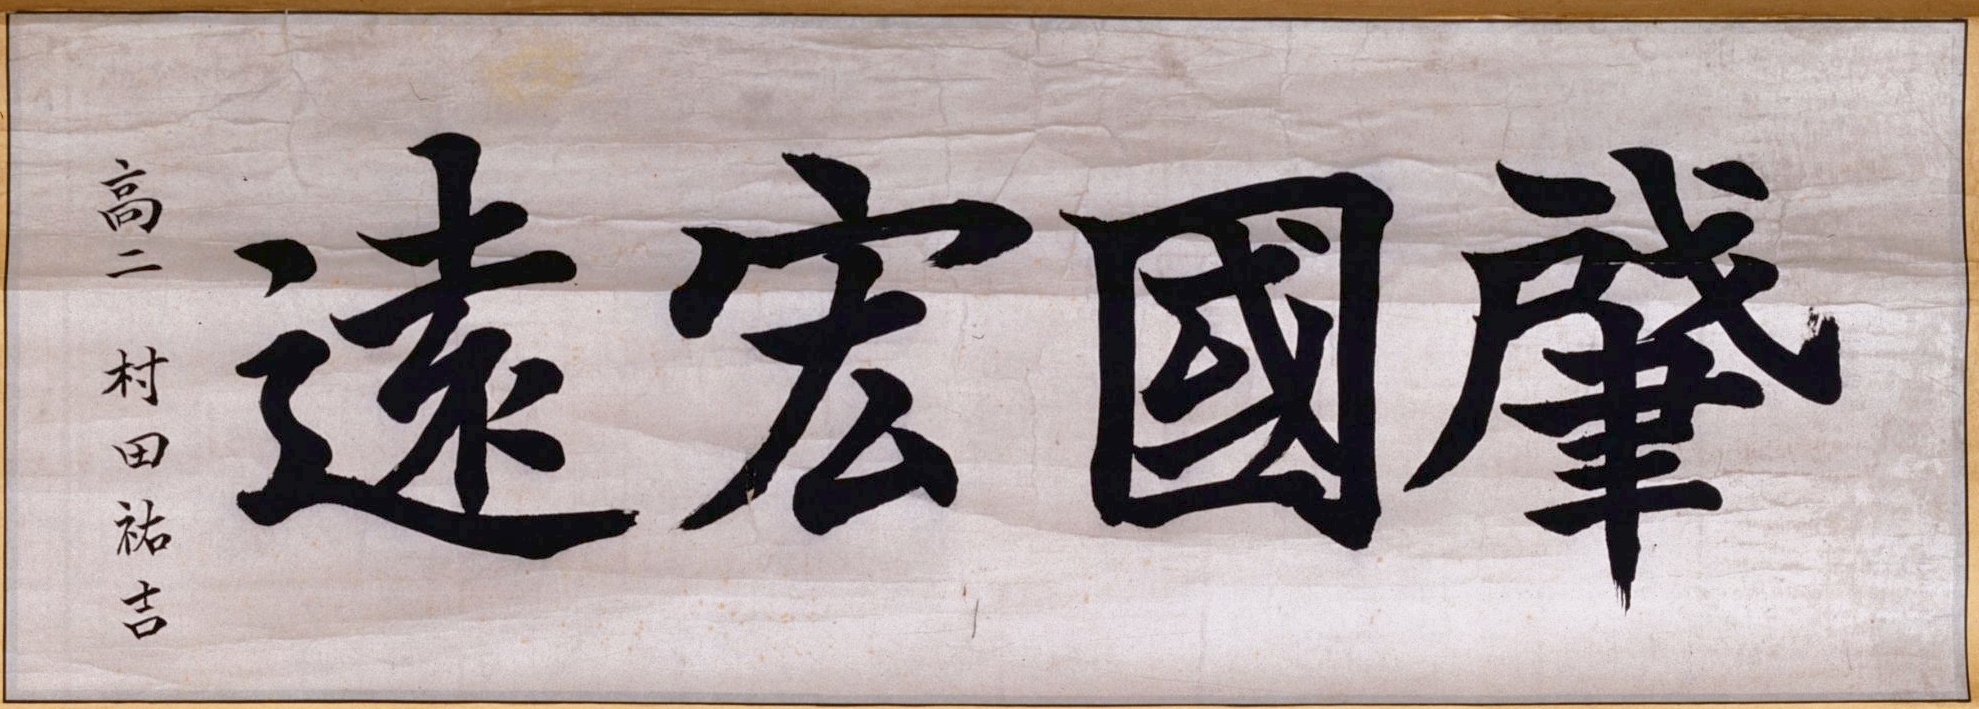 肇國宏遠
高二 村田祐吉